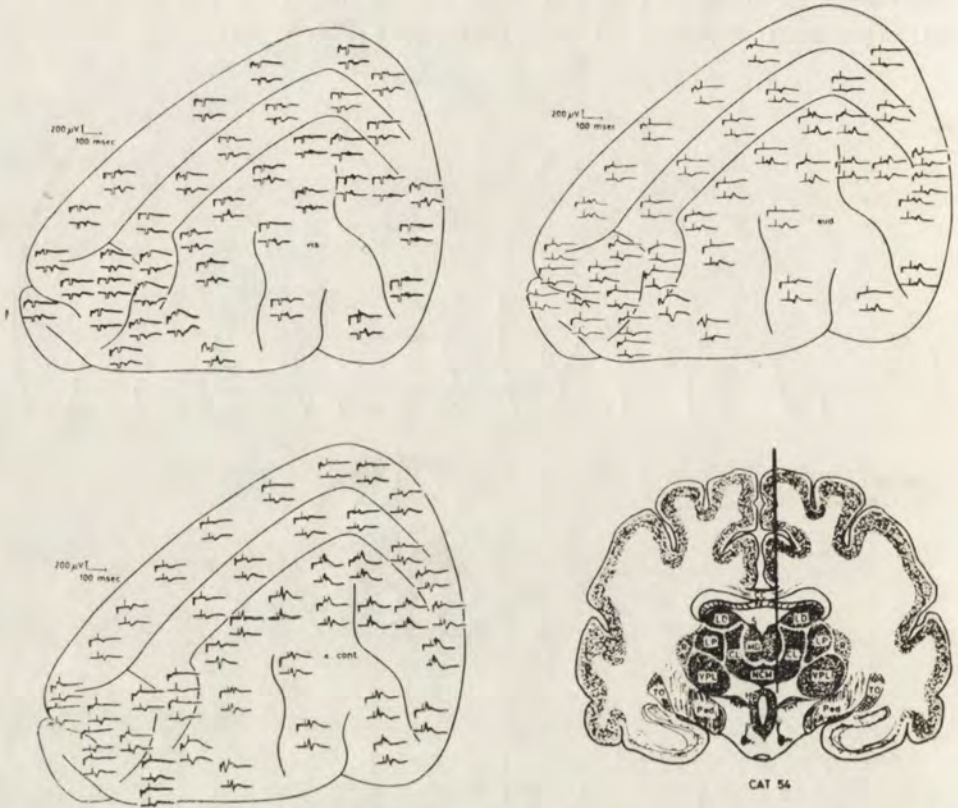 200 µV
100 msec
vis
200 µV
100 msec
aud
200 µV
100 msec
x. cont.
LD
LD
LP
MD
LP
CL
CL
VPL
NCM
VPL
TO
TO
Ped
Ped
CAT 54